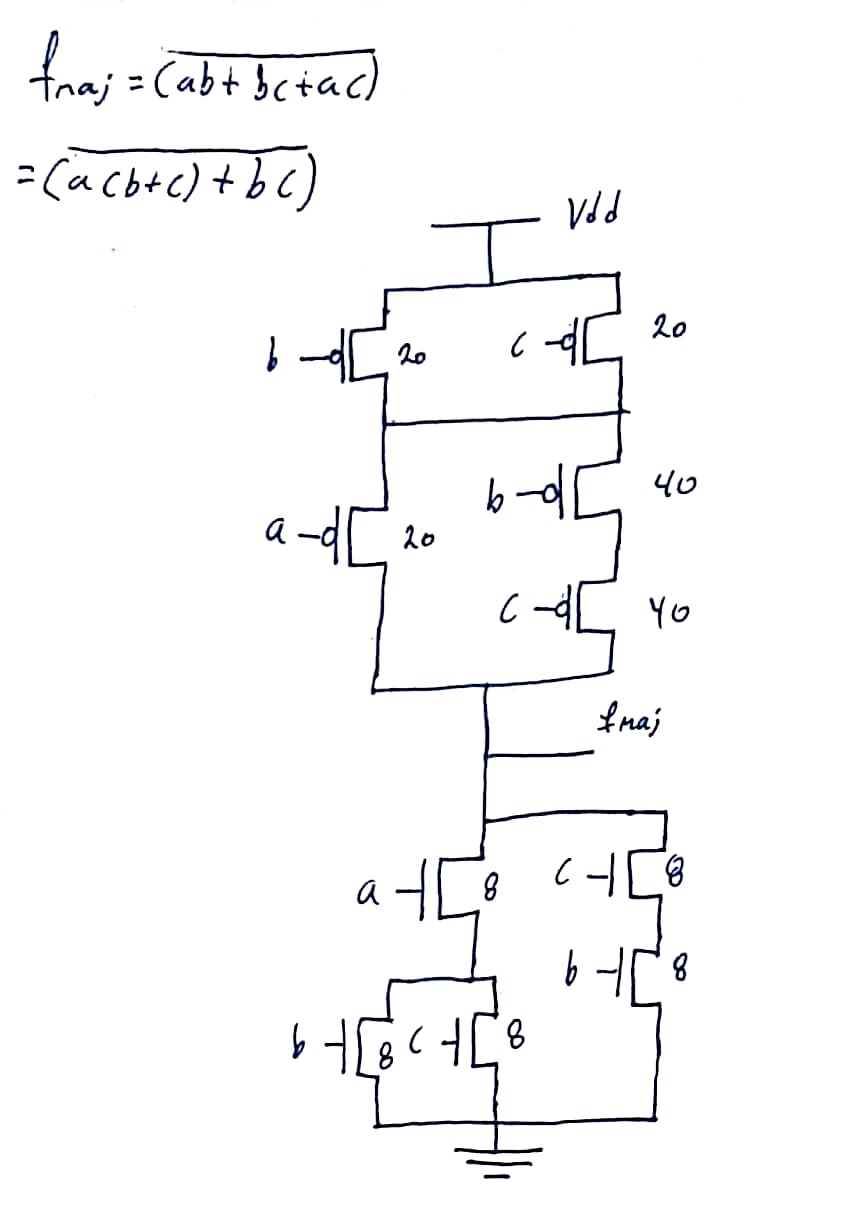 fmaj = (ab + bc + ac)
= (a(b+c) + bc)
Vdd
b 20 c 20
b 40
a 20
c 40
fmaj
a 8 c 8
b 8
b 8 c 8